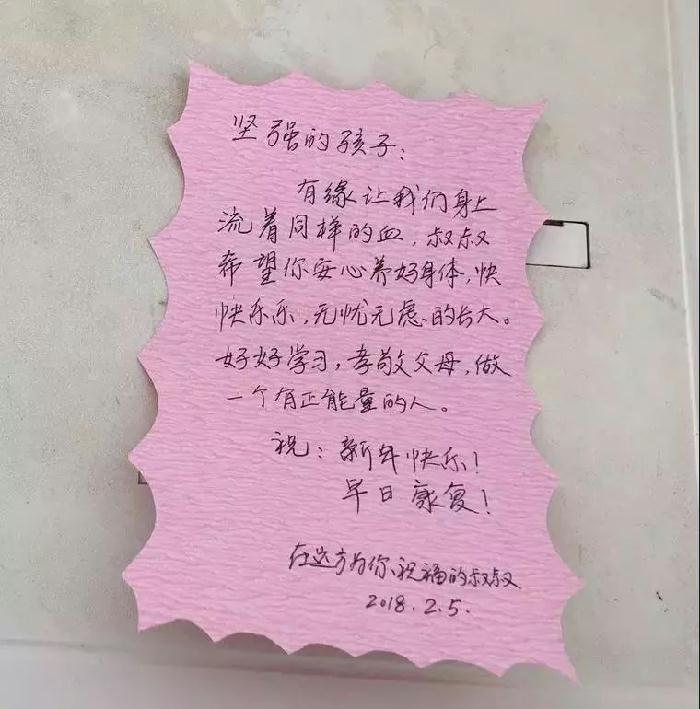 坚强的孩子：
有缘让我们身上
流着同样的血，叔叔
希望你安心养好身体，快
快乐乐，无忧无虑的长大。
好好学习，孝敬父母，做
一个有正能量的人。
祝：新年快乐！
早日康复！
在远方为你祝福的叔叔
2018.2.5.